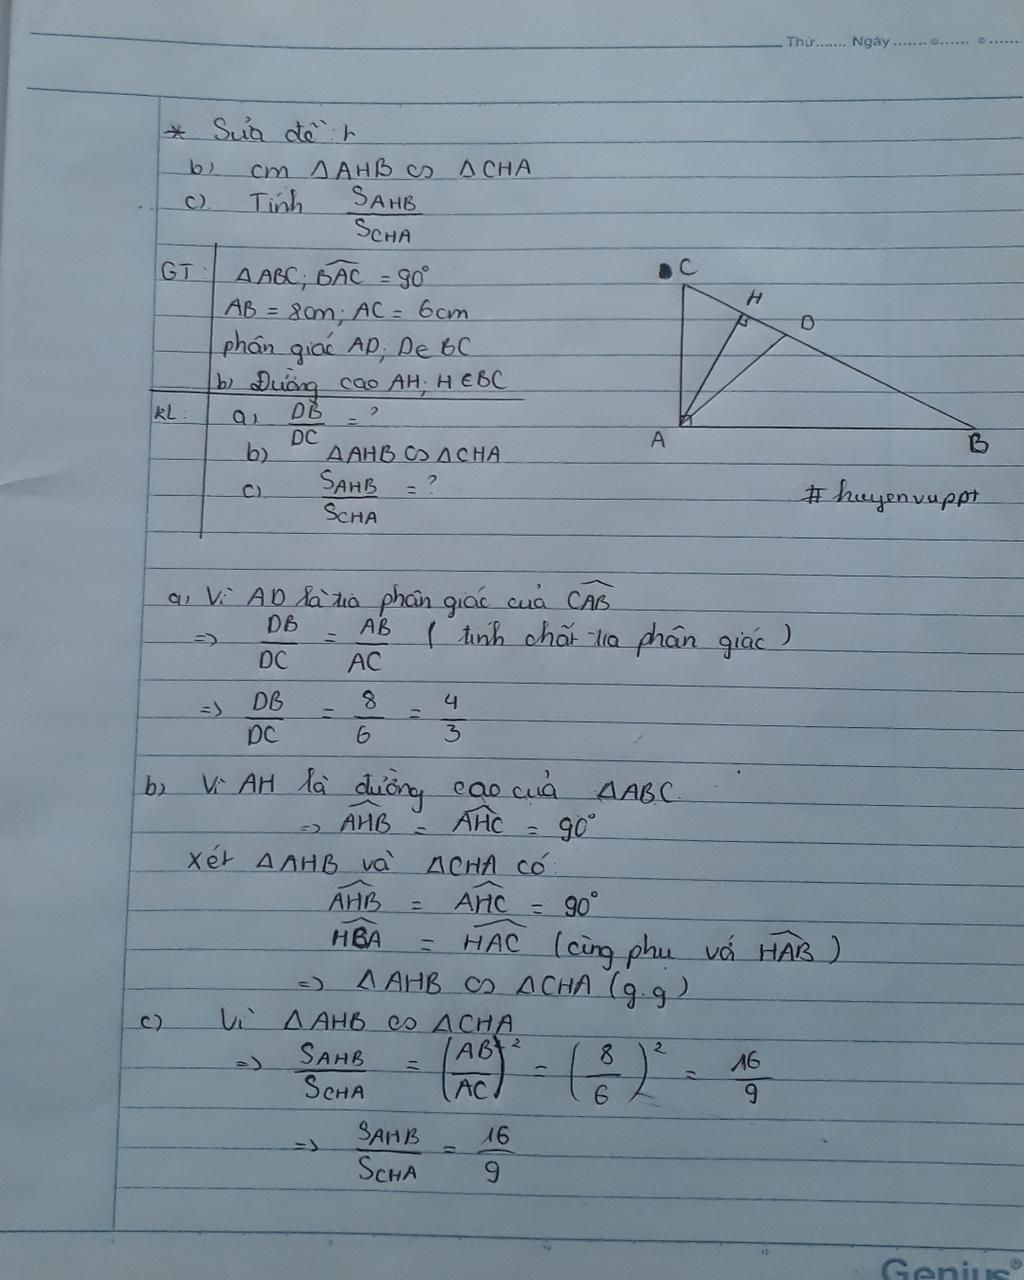 Thứ....... Ngày ....... ....... .......
* Sửa đề:
b) cm ΔAHB ∽ ΔCHA
c) Tính S_AHB / S_CHA
GT: ΔABC; \widehat{BAC} = 90°
AB = 8cm; AC = 6cm
phân giác AD; D∈BC
b) Đường cao AH; H∈BC
KL: a, DB/DC = ?
b) ΔAHB ∽ ΔCHA
c) S_AHB / S_CHA = ?
C
H
D
A
B
#huyenvuppt
a, Vì AD là tia phân giác của \widehat{CAB}
=> DB/DC = AB/AC (tính chất tia phân giác)
=> DB/DC = 8/6 = 4/3
b) Vì AH là đường cao của ΔABC.
=> \widehat{AHB} = \widehat{AHC} = 90°
Xét ΔAHB và ΔCHA có:
\widehat{AHB} = \widehat{AHC} = 90°
\widehat{HBA} = \widehat{HAC} (cùng phụ với \widehat{HAB})
=> ΔAHB ∽ ΔCHA (g.g)
c) Vì ΔAHB ∽ ΔCHA
=> S_AHB / S_CHA = (AB/AC)² = (8/6)² = 16/9
=> S_AHB / S_CHA = 16/9
Genius®